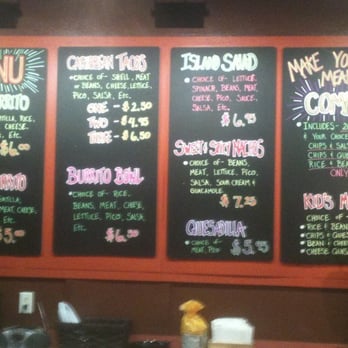 NU
RRITO
TILLA, RICE,
CHEESE,
ETC.
$6.00
RRITO
TILLA,
MEAT, CHEESE,
ETC.
$5.00
CARIBBEAN TACOS
• CHOICE OF - SHELL, MEAT
OR BEANS, CHEESE, LETTUCE,
PICO, SALSA, ETC.
ONE - $2.50
TWO - $4.95
THREE - $6.50
BURRITO BOWL
• CHOICE OF - RICE,
BEANS, MEAT, CHEESE,
LETTUCE, PICO, SALSA,
ETC.
$6.50
ISLAND SALAD
• CHOICE OF - LETTUCE,
SPINACH, BEANS, MEAT,
CHEESE, PICO, SAUCE,
SALSA, ETC.
$6.95
NACHOS
• CHOICE OF - BEANS,
MEAT, LETTUCE, PICO,
SALSA, SOUR CREAM &
GUACAMOLE
$7.25
QUESADILLA
• CHOICE OF -
MEAT, PICO
$5.95
MAKE YOU
MEA
COM
• INCLUDES - 2
& YOUR CHOICE
CHIPS &
CHIPS & SALS
RICE & BEAN
ONLY
KID'S M
CHOICE OF -
• RICE & BEAN
• CHIPS &
• BEAN & CHEE
• CHEESE QUESA